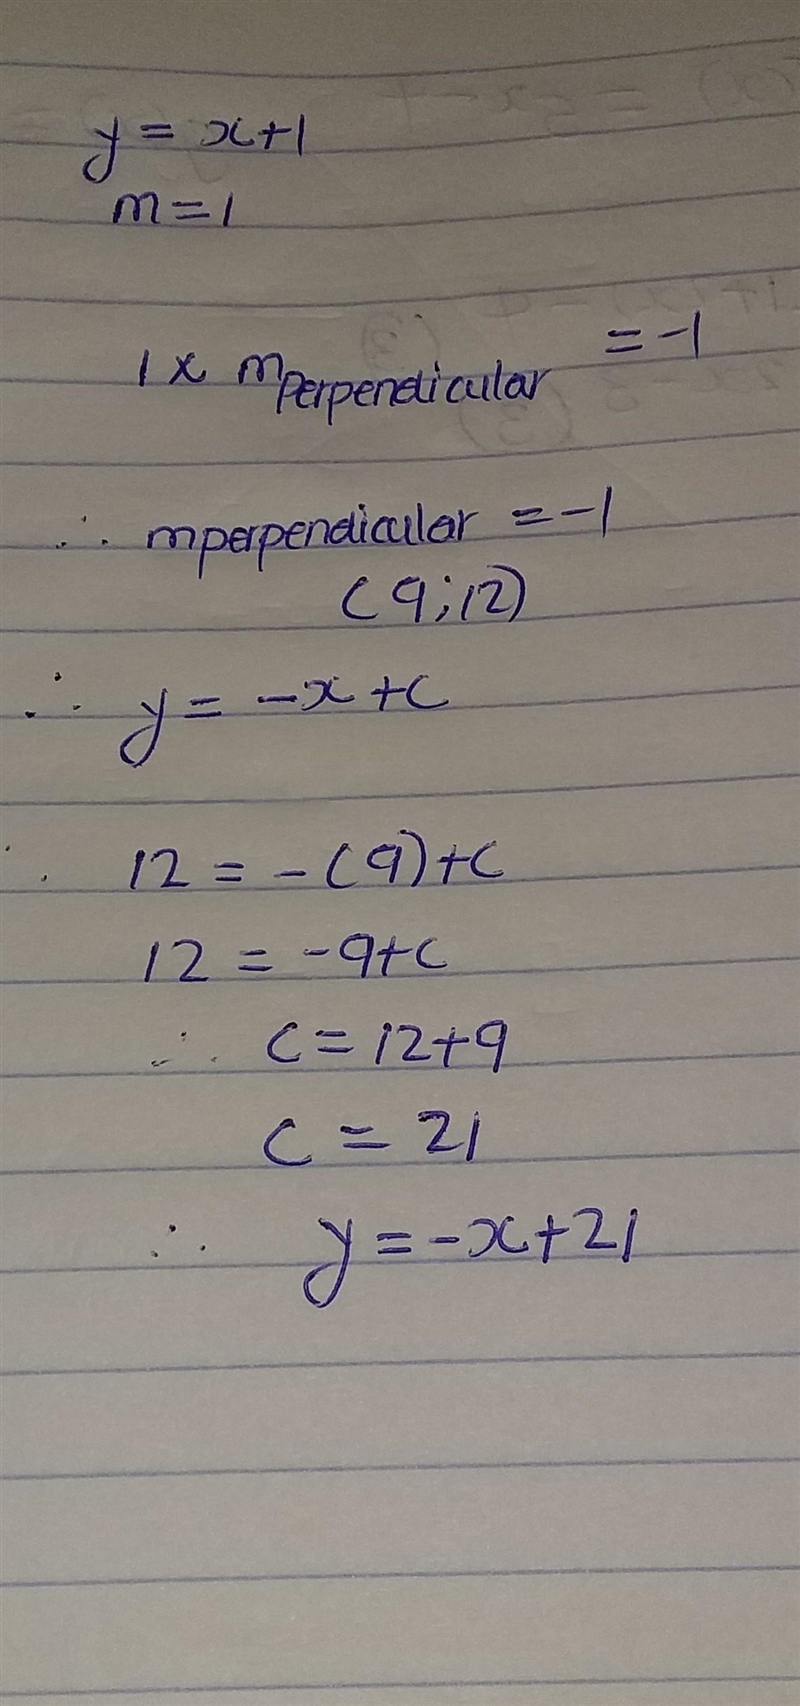 y = x+1
m=1
1 x m perpendicular = -1
∴ mperpendicular = -1
(9;12)
∴ y = -x+c
∴ 12 = -(9)+c
12 = -9+c
∴ c=12+9
c = 21
∴ y = -x+21